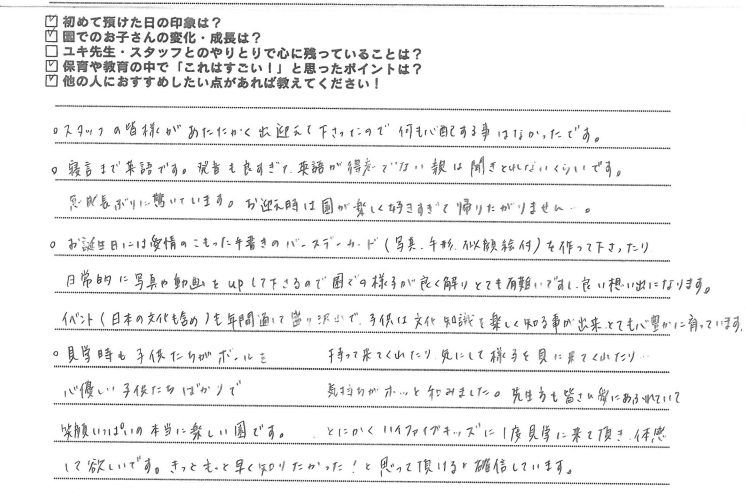 初めて預けた日の印象は？
園でのお子さんの変化・成長は？
ユキ先生・スタッフとのやりとりで心に残っていることは？
保育や教育の中で「これはすごい！」と思ったポイントは？
他の人におすすめしたい点があれば教えてください！
○スタッフの皆様があたたかく出迎えて下さったので何も心配する事はなかったです。
○寝言まで英語です。発音も良すぎて、英語が得意でない親は聞きとれないくらいです。
急成長ぶりに驚いています。お迎え時は園が楽しく好きすぎて帰りたがりません…。
○お誕生日には愛情のこもった手書きのバースデーカード(写真、手形、似顔絵付)を作って下さったり
日常的に写真や動画をupして下さるので園での様子が良く解りとても有難いですし、良い想い出になります。
イベント(日本の文化も含め)も年間通して盛り沢山で、子供は文化知識を楽しく知る事が出来、とても心豊かに育っています。
○見学時も子供たちがボールを 持って来てくれたり、気にして様子を見に来てくれたり…
心優しい子供たちばかりで 気持ちがホッと和みました。先生方も皆さん愛にあふれていて
笑顔いっぱいの本当に楽しい園です。 とにかくハイファイブキッズに1度見学に来て頂き、体感
して欲しいです。きっともっと早く知りたかった！と思って頂けると確信しています。